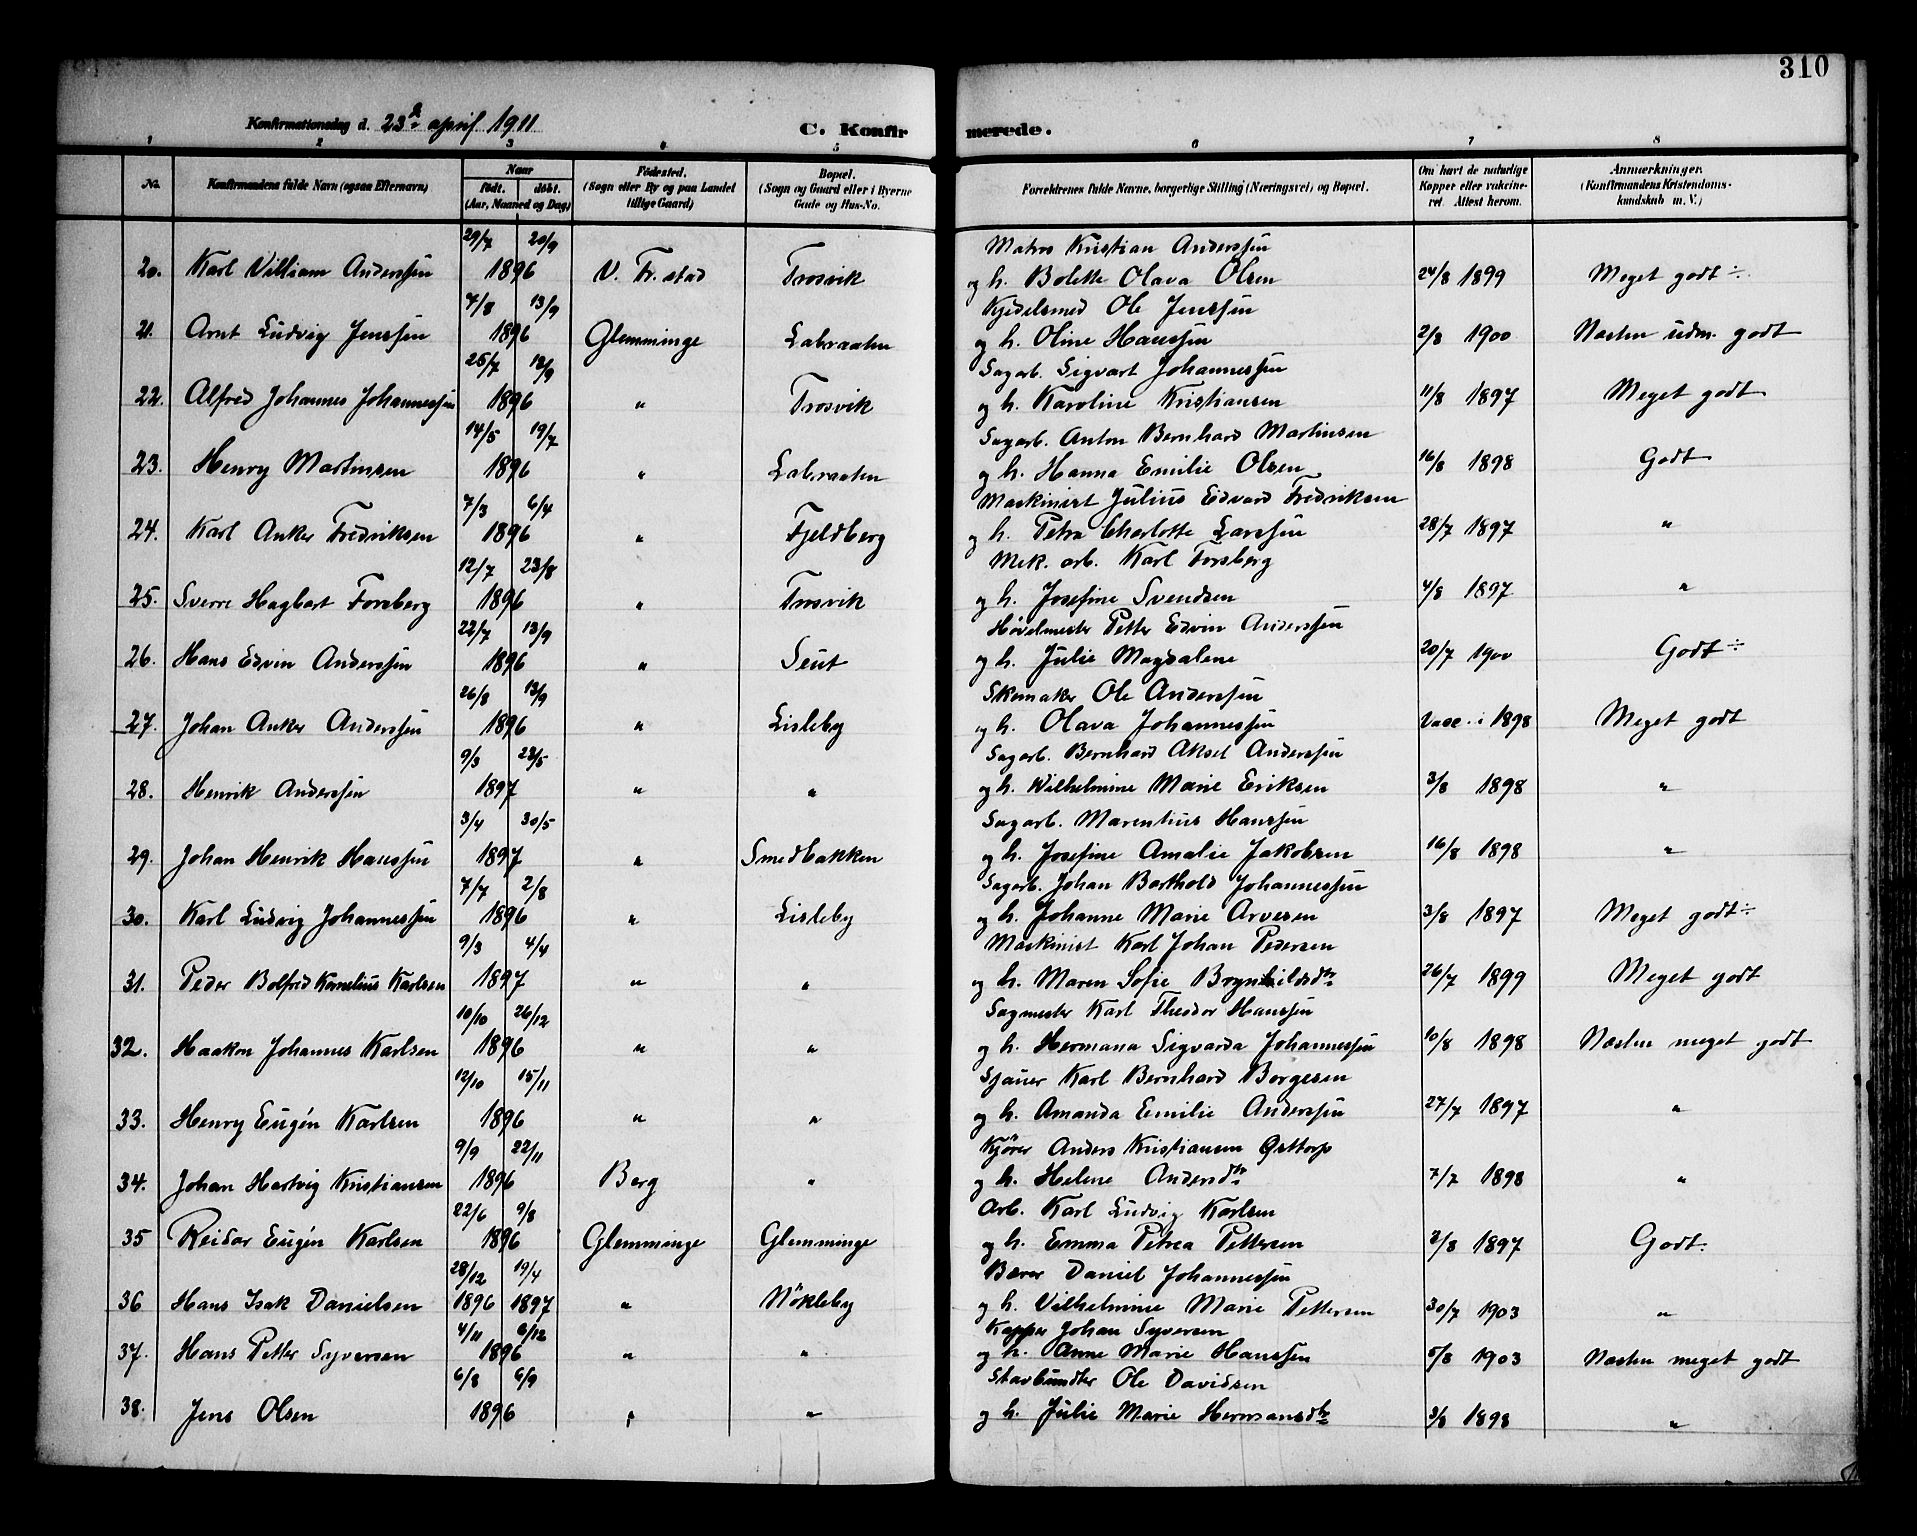 310
Konfirmationsdag d. 23de april 1911 C. Konfirmerede.
1 2 3 4 5 6 7 8
No. Konfirmandens fulde Navn (ogsaa Efternavn) Naar født. døbt. (Aar, Maaned og Dag) Fødested. (Sogn eller By og paa Landet tillige Gaard) Bopæl. (Sogn og Gaard eller i Byerne Gade og Hus-No. Forældrenes fulde Navne, borgerlige Stilling (Næringsvei) og Bopæl. Om havt de naturlige Kopper eller vakcineret. Attest herom. Anmærkninger. (Konfirmandens Kristendomskundskab m. V.)
29/7 20/9 Matros Kristian Anderssen
20. Karl William Anderssen 1896 V. Fr.stad Trosvik og h. Bolette Olava Olsen 24/8 1899 Meget godt ÷
7/8 13/9 Kjedelsmed Ole Jenssen
21. Arnt Ludvig Jenssen 1896 Glemminge Labraaten og h. Oline Hanssen 2/8 1900 Næsten udm. godt
25/7 13/9 Sagarb. Sigvart Johannessen
22. Alfred Johannes Johannessen 1896 " Trosvik og h. Karoline Kristiansen 11/8 1897 Meget godt
14/5 19/7 Sagarb. Anton Bernhard Martinsen
23. Henry Martinsen 1896 " Labraaten og h. Hanna Emilie Olsen 16/8 1898 Godt
7/3 6/4 Maskinist Julius Edvard Fredriksen
24. Karl Anker Fredriksen 1896 " Fjeldberg og h. Petra Charlotte Larssen 28/7 1897 "
12/7 23/8 Mek. arb. Karl Forsberg
25. Sverre Hagbart Forsberg 1896 " Trosvik og h. Josefine Svendsen 4/8 1897 "
22/7 13/9 Høvelmester Petter Edvin Anderssen
26. Hans Edvin Anderssen 1896 " Seut og h. Julie Magdalene 20/7 1900 Godt ÷
26/8 13/9 Skomaker Ole Anderssen
27. Johan Anker Anderssen 1896 " Lisleby og h. Olava Johannessen Vacc. i 1898 Meget godt
9/3 23/5 Sagarb. Bernhard Aksel Anderssen
28. Henrik Anderssen 1897 " " og h. Wilhelmine Marie Eriksen 3/8 1898 "
3/4 30/5 Sagarb. Marentius Hanssen
29. Johan Henrik Hanssen 1897 " Smedbakken og h. Josefine Amalie Jakobsen 16/8 1898 "
7/7 2/8 Sagarb. Johan Barthold Johannessen
30. Karl Ludvig Johannessen 1896 " Lisleby og h. Johanne Marie Arvesen 3/8 1897 Meget godt ÷
9/3 4/4 Maskinist Karl Johan Pedersen
31. Peder Bolfred Kornelius Karlsen 1897 " " og h. Maren Sofie Brynhildsdtr 26/7 1899 Meget godt
10/10 26/12 Sagmester Karl Theodor Hanssen
32. Haakon Johannes Karlsen 1896 " " og h. Hermana Sigvarda Johannessen 10/8 1898 Næsten meget godt
12/10 15/11 Sjauer Karl Bernhard Borgesen
33. Henry Eugén Karlsen 1896 " " og h. Amanda Emilie Anderssen 27/7 1897 "
9/9 22/11 Kjörer Anders Kristiansen Østtorp
34. Johan Hartvig Kristiansen 1896 Berg " og h. Helene Andersdtr 7/7 1898 "
22/6 9/8 Arb. Karl Ludvig Karlsen
35 Reidar Eugén Karlsen 1896 Glemminge Glemminge og h. Emma Petrea Pettersen 2/8 1897 Godt.
28/12 19/4 Bærer Daniel Johannessen
36 Hans Isak Danielsen 1896 1897 " Nökleby og h. Vilhelmine Marie Pettersen 30/7 1903 "
4/11 6/12 Kapper Johan Syversen
37. Hans Petter Syversen 1896 " " og h. Anne Marie Hanssen 5/8 1903 Næsten meget godt
6/8 6/9 Stavbundter Ole Davidsen
38. Jens Olsen 1896 " " og h. Julie Marie Hermansdtr 3/8 1898 "